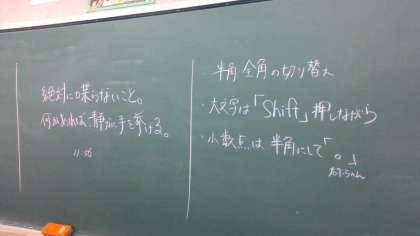 絶対に喋らないこと。
何かあれば静かに手を挙げる。
11:06
半角 全角の切り替え
・大文字は「Shift」押しながら
・小数点は半角にして「。」